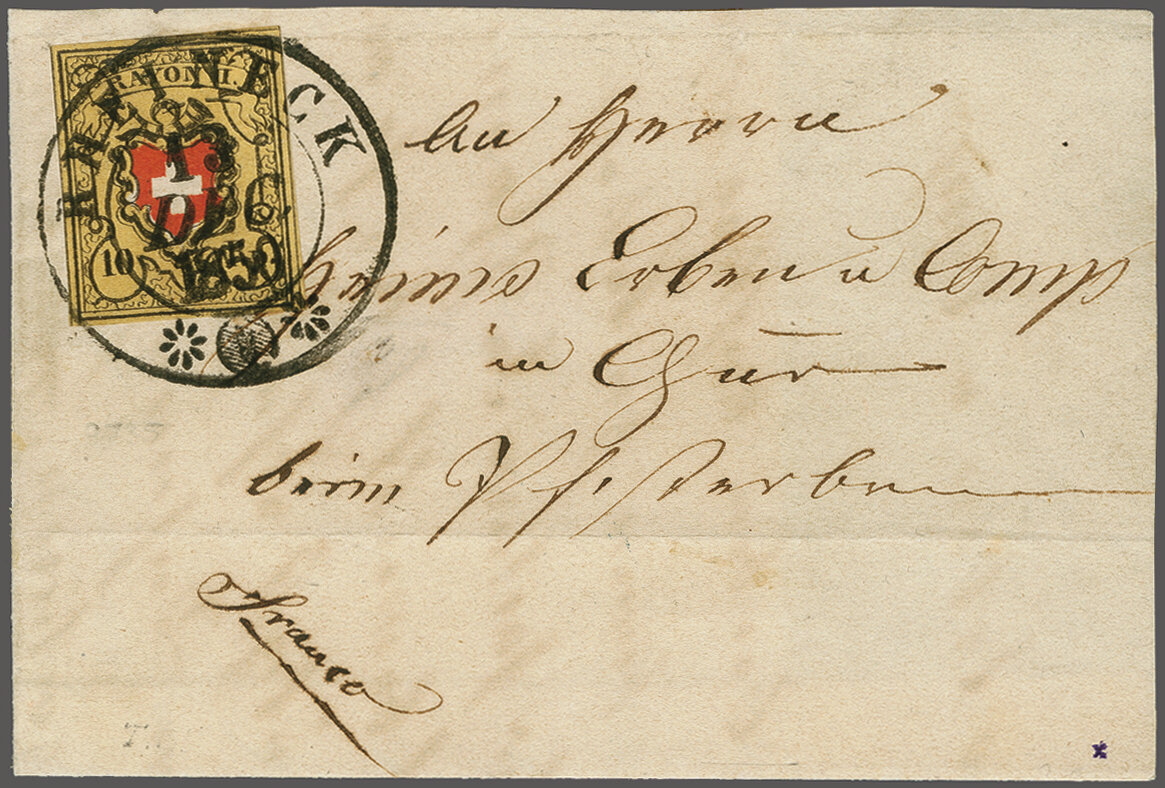 RAYON II.
10
RHEINECK
13
DEC.
1850
An Herren
Erben u Comp
in Chur
beim Pfisterbrunnen
Franco